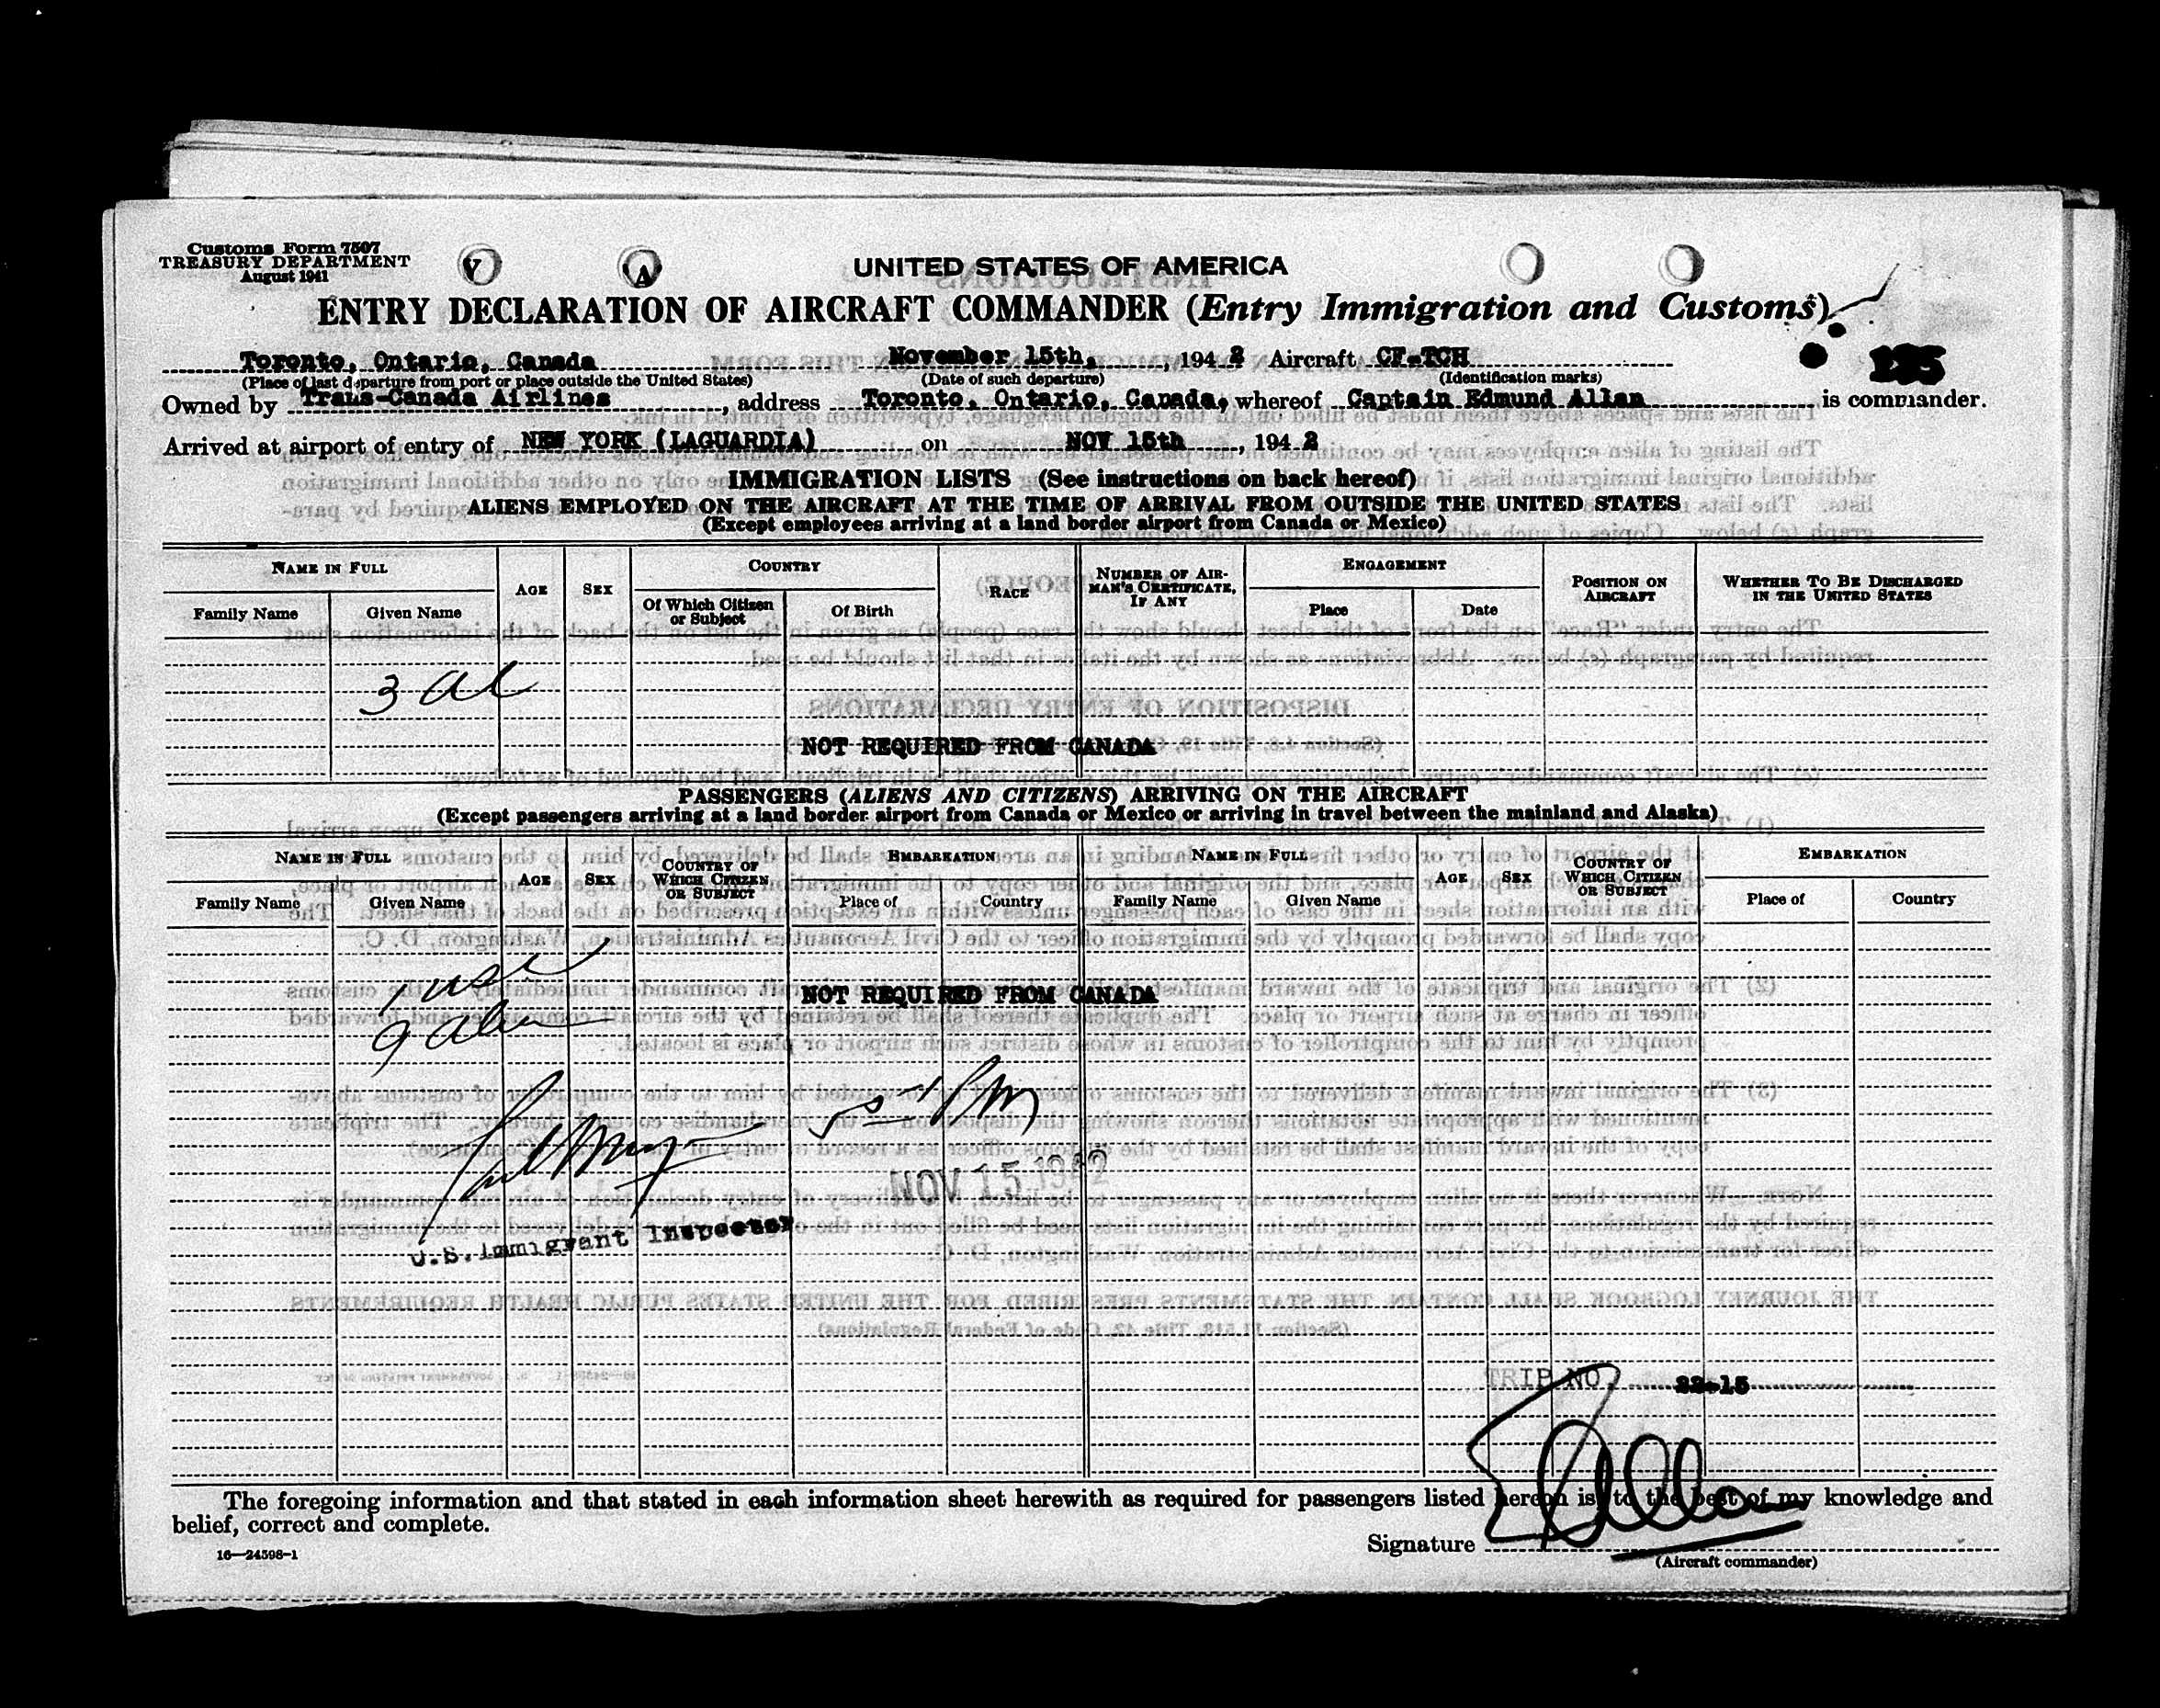 Customs Form 7507
TREASURY DEPARTMENT
August 1941
V
A
UNITED STATES OF AMERICA
ENTRY DECLARATION OF AIRCRAFT COMMANDER (Entry Immigration and Customs)
Toronto, Ontario, Canada November 15th, , 194 2 Aircraft CF-TCH
(Place of last departure from port or place outside the United States) (Date of such departure) (Identification marks)
Owned by Trans-Canada Airlines , address Toronto, Ontario, Canada, whereof Captain Edmund Allan is commander.
Arrived at airport of entry of NEW YORK (LAGUARDIA) on NOV 15th , 194 2
IMMIGRATION LISTS (See instructions on back hereof)
ALIENS EMPLOYED ON THE AIRCRAFT AT THE TIME OF ARRIVAL FROM OUTSIDE THE UNITED STATES
(Except employees arriving at a land border airport from Canada or Mexico)
NAME IN FULL AGE SEX COUNTRY RACE NUMBER OF AIRMAN'S CERTIFICATE, IF ANY ENGAGEMENT POSITION ON AIRCRAFT WHETHER TO BE DISCHARGED IN THE UNITED STATES
Family Name Given Name Of Which Citizen or Subject Of Birth Place Date
3 al
NOT REQUIRED FROM CANADA
PASSENGERS (ALIENS AND CITIZENS) ARRIVING ON THE AIRCRAFT
(Except passengers arriving at a land border airport from Canada or Mexico or arriving in travel between the mainland and Alaska)
NAME IN FULL AGE SEX COUNTRY OF WHICH CITIZEN OR SUBJECT EMBARKATION NAME IN FULL AGE SEX COUNTRY OF WHICH CITIZEN OR SUBJECT EMBARKATION
Family Name Given Name Place of Country Family Name Given Name Place of Country
NOT REQUIRED FROM CANADA
9 alien
PM
NOV 15 1942
U.S. Immigrant Inspector
TRIP NO. 22-15
The foregoing information and that stated in each information sheet herewith as required for passengers listed hereon is, to the best of my knowledge and
belief, correct and complete.
Signature EAllan
16—24598-1
(Aircraft commander)